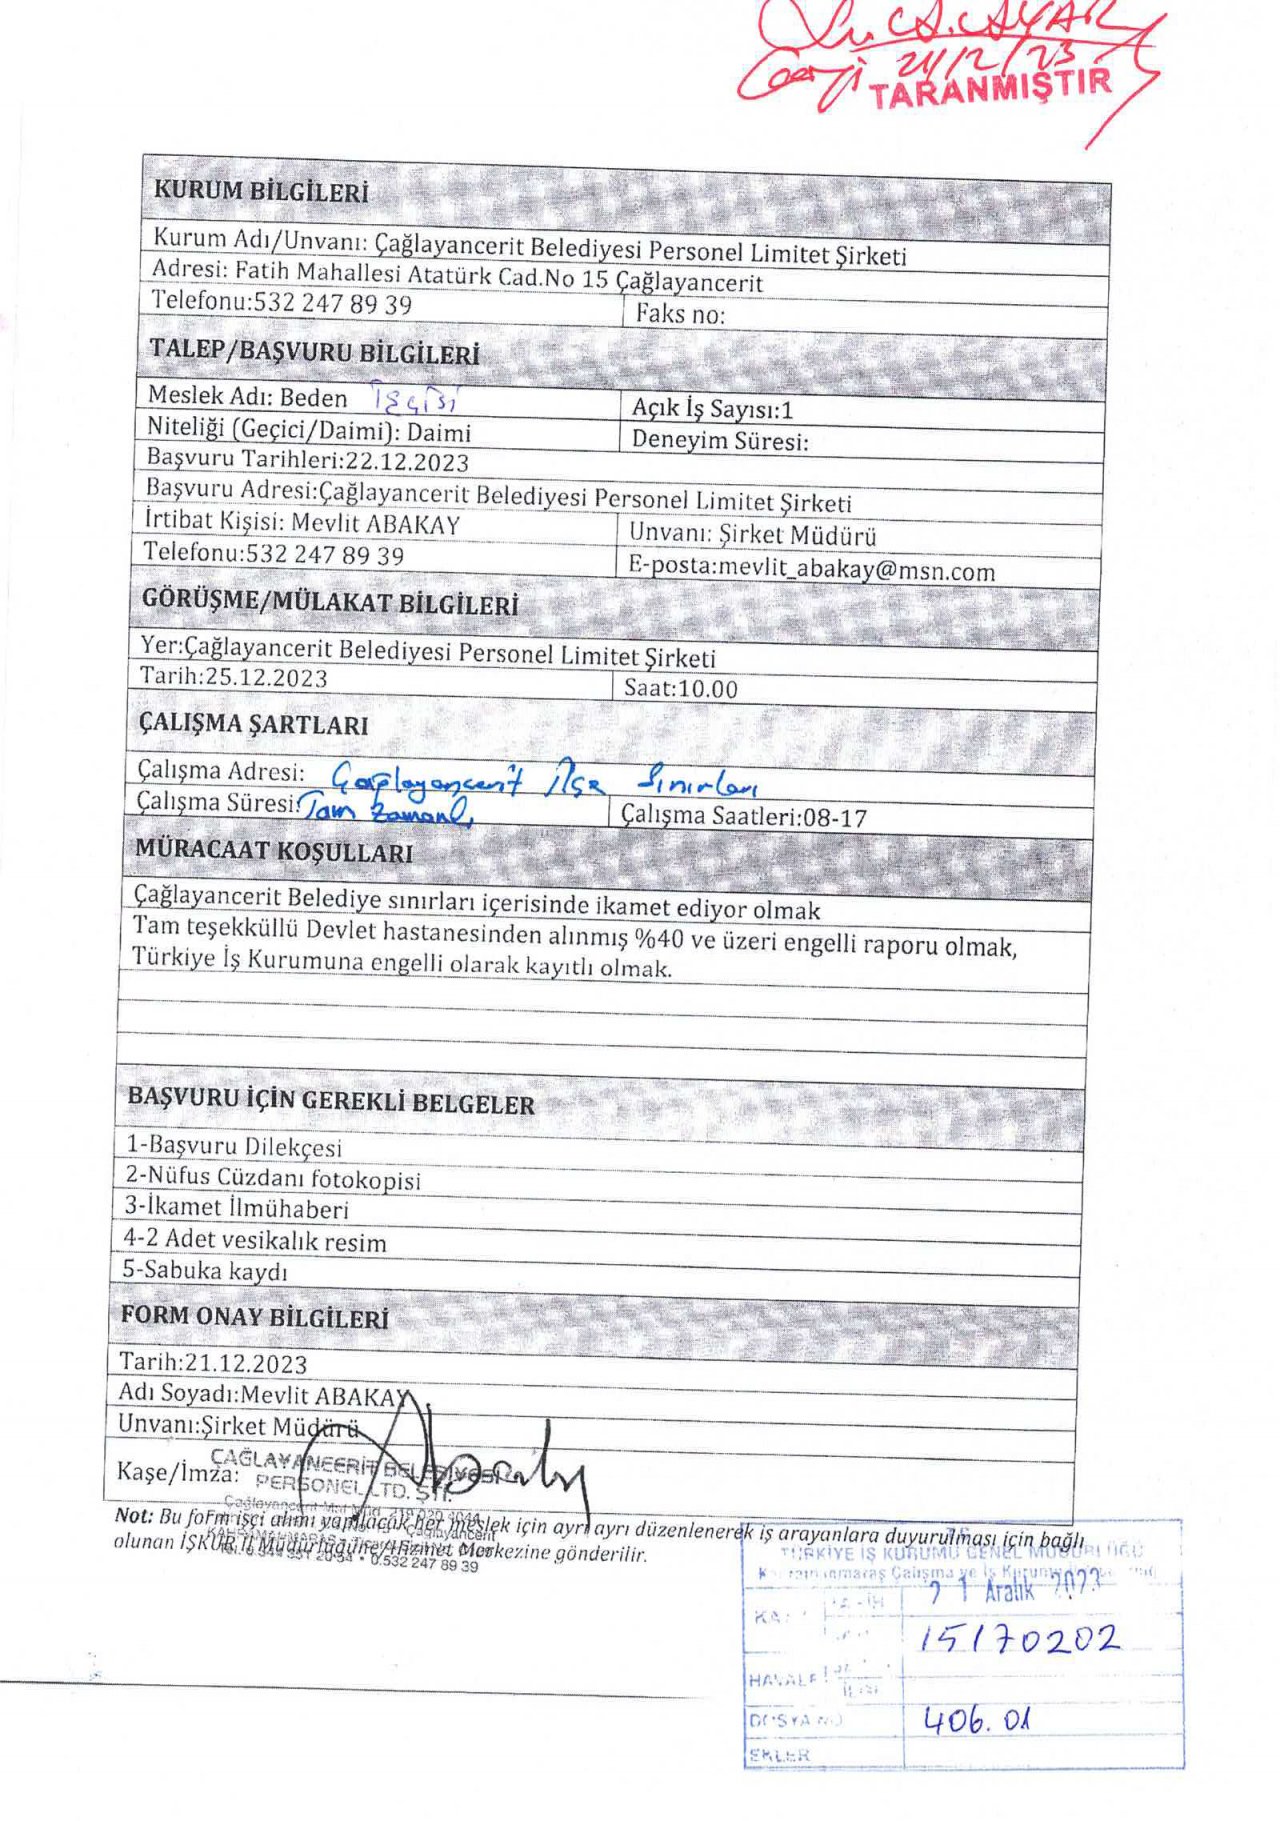 C.A.CAYAR
21/12/23
TARANMIŞTIR
KURUM BİLGİLERİ
Kurum Adı/Unvanı: Çağlayancerit Belediyesi Personel Limitet Şirketi
Adresi: Fatih Mahallesi Atatürk Cad.No 15 Çağlayancerit
Telefonu:532 247 89 39 Faks no:
TALEP/BAŞVURU BİLGİLERİ
Meslek Adı: Beden İşçisi Açık İş Sayısı:1
Niteliği (Geçici/Daimi): Daimi Deneyim Süresi:
Başvuru Tarihleri:22.12.2023
Başvuru Adresi:Çağlayancerit Belediyesi Personel Limitet Şirketi
İrtibat Kişisi: Mevlit ABAKAY Unvanı: Şirket Müdürü
Telefonu:532 247 89 39 E-posta:mevlit_abakay@msn.com
GÖRÜŞME/MÜLAKAT BİLGİLERİ
Yer:Çağlayancerit Belediyesi Personel Limitet Şirketi
Tarih:25.12.2023 Saat:10.00
ÇALIŞMA ŞARTLARI
Çalışma Adresi: Çağlayancerit İlçe Sınırları
Çalışma Süresi:Tam Zamanlı Çalışma Saatleri:08-17
MÜRACAAT KOŞULLARI
Çağlayancerit Belediye sınırları içerisinde ikamet ediyor olmak
Tam teşekküllü Devlet hastanesinden alınmış %40 ve üzeri engelli raporu olmak,
Türkiye İş Kurumuna engelli olarak kayıtlı olmak.
BAŞVURU İÇİN GEREKLİ BELGELER
1-Başvuru Dilekçesi
2-Nüfus Cüzdanı fotokopisi
3-İkamet İlmühaberi
4-2 Adet vesikalık resim
5-Sabuka kaydı
FORM ONAY BİLGİLERİ
Tarih:21.12.2023
Adı Soyadı:Mevlit ABAKAY
Unvanı:Şirket Müdürü
Kaşe/İmza:
ÇAĞLAYANCERİT BELEDİYESİ
PERSONEL LTD. ŞTİ.
0.532 247 89 39
Not: Bu form işçi alımı yapılacak her meslek için ayrı ayrı düzenlenerek iş arayanlara duyurulması için bağlı
olunan İŞKUR İl Müdürlüğüne/Hizmet Merkezine gönderilir.
TÜRKİYE İŞ KURUMU GENEL MÜDÜRLÜĞÜ
21 Aralık 2023
15170202
HAVALE
DOSYA NO 406.01
EKLER